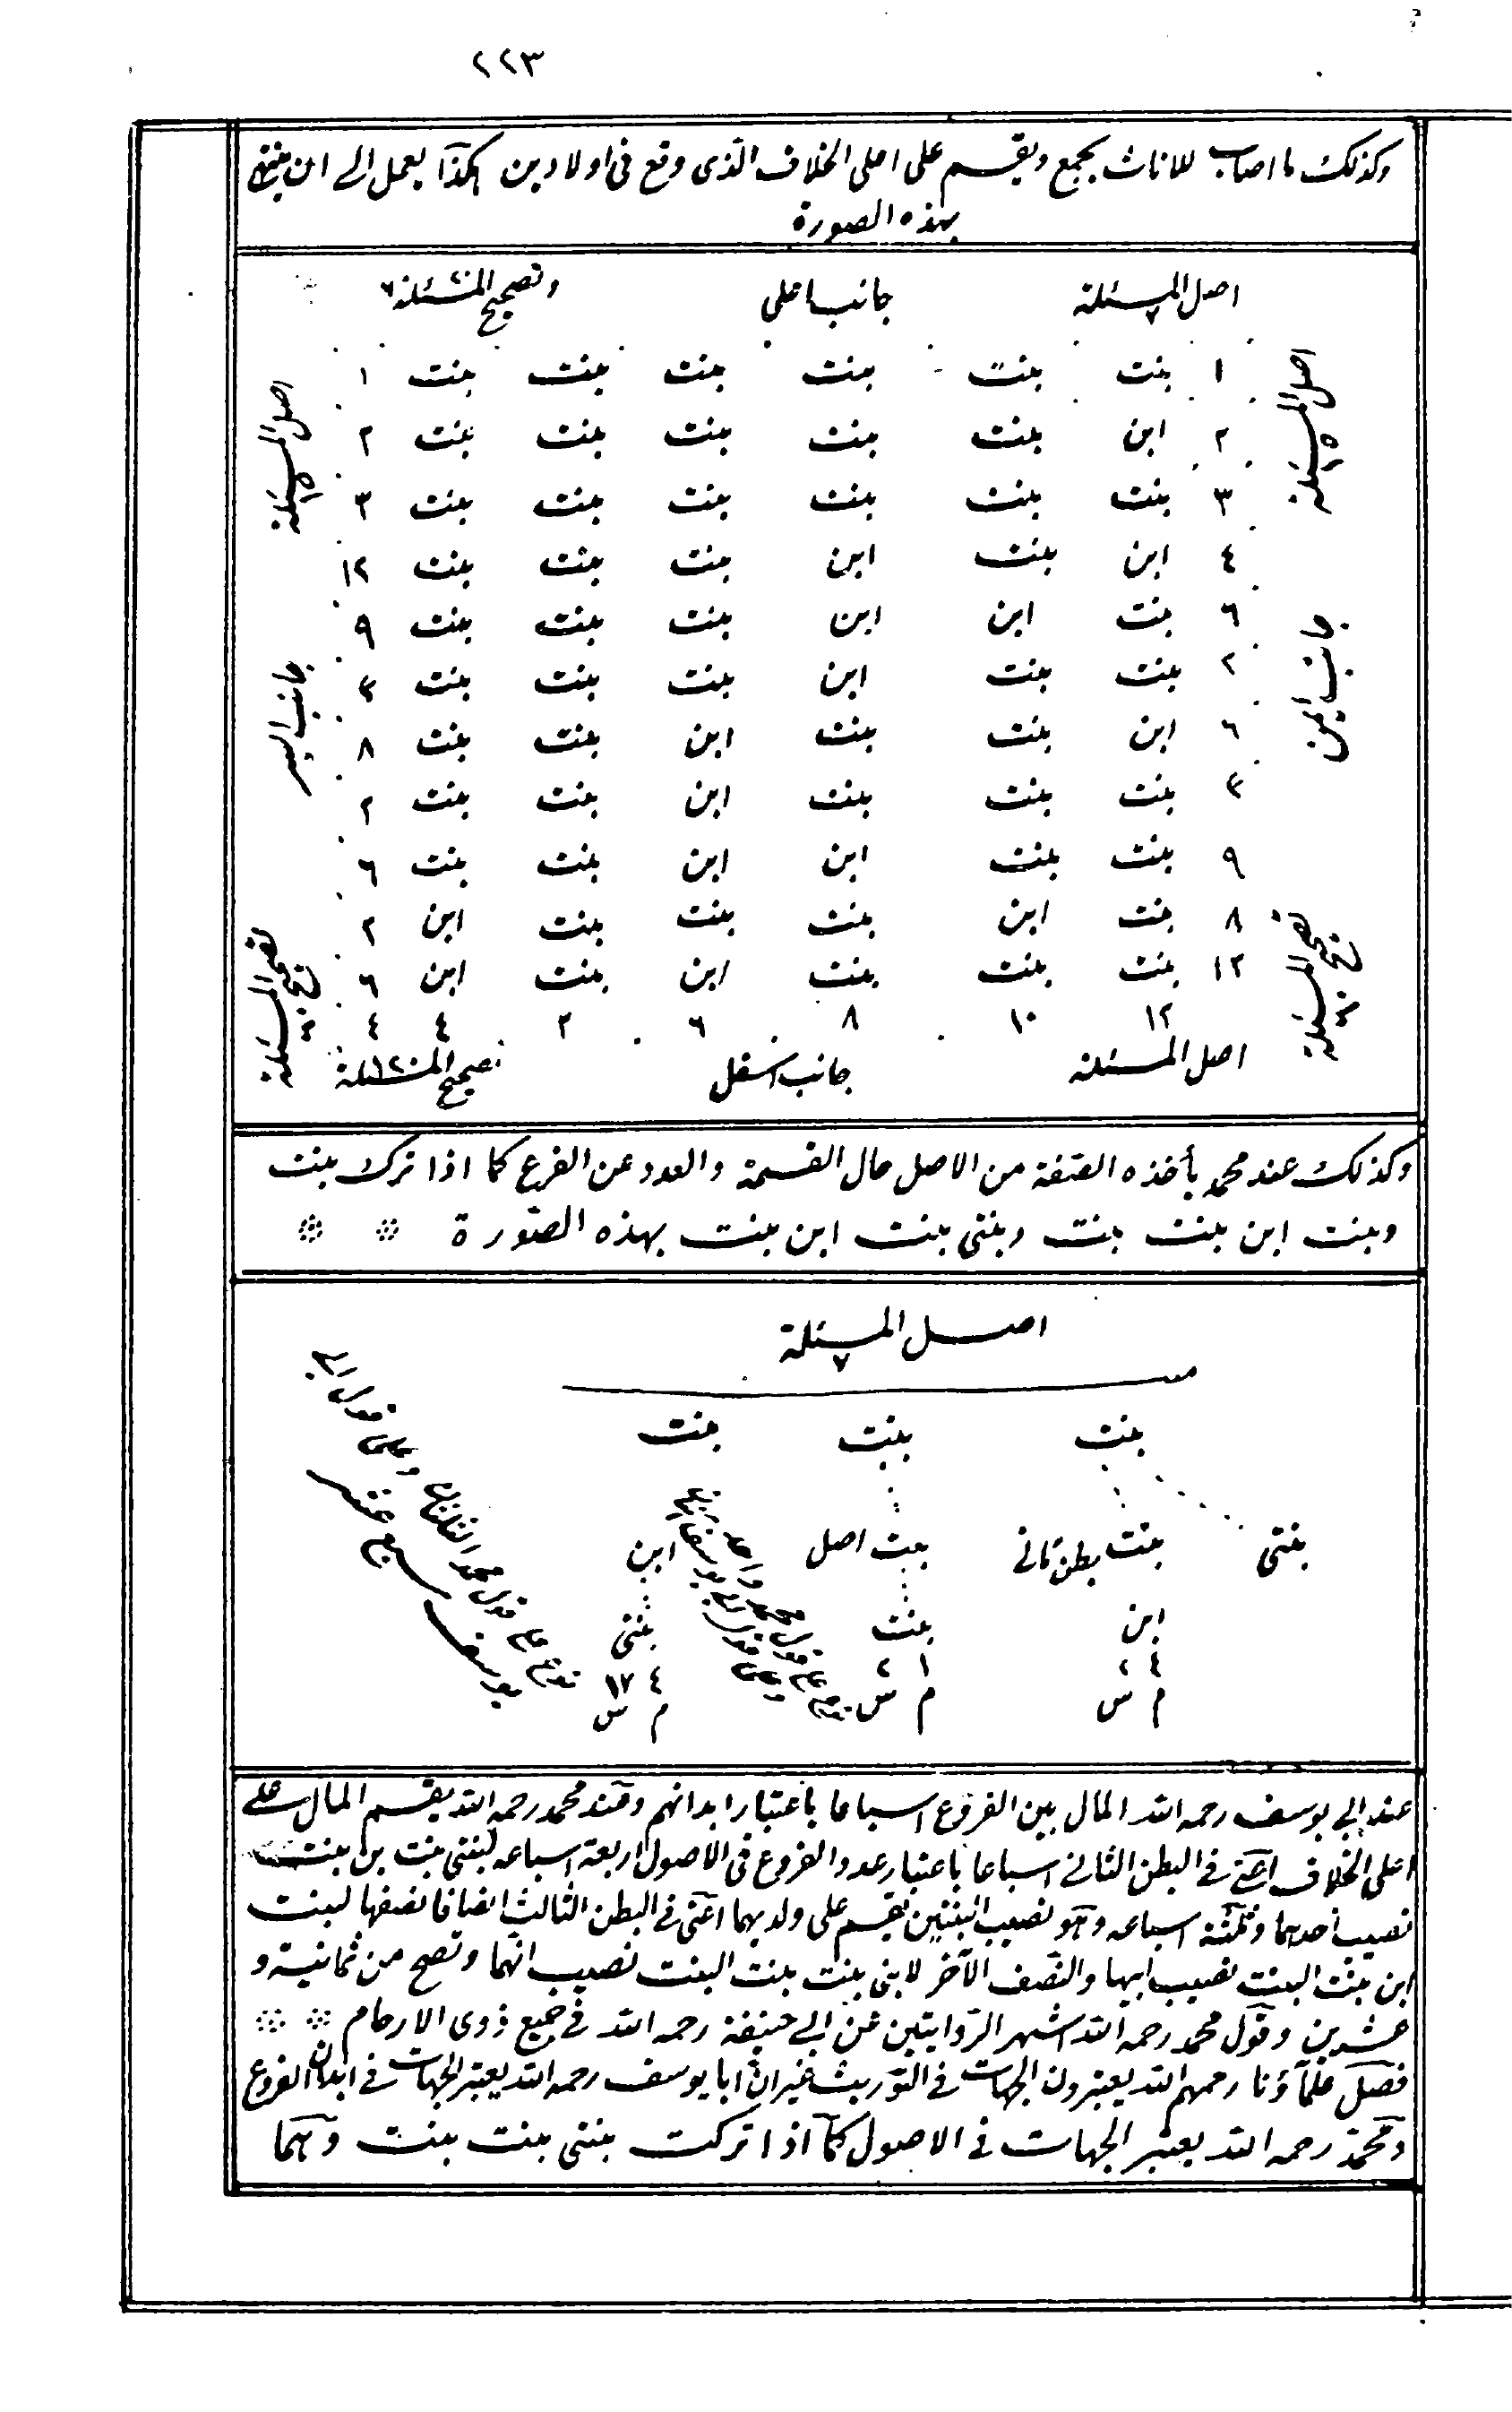 ٢٢٣
وكذلك ما اصاب للاناث يجمع ويقسم على اعلى الخلاف الذى وقع فى اولادهن هكذا يعمل الى ان ينتهى
بهذه الصورة
اصل المسئلة جانب اعلى وتصحيح المسئلة
اصل المسئلة ١٥
جانب ايمن
تصحيح المسئلة ٦٠
١ بنت بنت بنت بنت بنت بنت ١
٢ ابن بنت بنت بنت بنت بنت ٢
٣ بنت بنت بنت بنت بنت بنت ٣
٤ ابن بنت ابن بنت بنت بنت ١٢
٦ بنت ابن ابن بنت بنت بنت ٩
٢ بنت بنت ابن بنت بنت بنت ٣
٦ ابن بنت بنت ابن بنت بنت ٨
٣ بنت بنت بنت ابن بنت بنت ٢
٩ بنت بنت ابن ابن بنت بنت ٦
٨ بنت ابن بنت بنت بنت ابن ٢
١٢ بنت بنت بنت ابن بنت ابن ٦
١٢ ١٠ ٨ ٦ ٢ ٤ ٤
اصل المسئلة
جانب ايسر
تصحيح المسئلة ٦٠
اصل المسئلة جانب اسفل تصحيح المسئلة
وكذلك عند محمد يأخذه الصفة من الاصل حال القسمة والعدد عن الفرع كما اذا ترك بنت
وبنت ابن بنت بنت وبنتى بنت ابن بنت بهذه الصورة
اصل المسئلة ٧
بنت بنت بنت
بنتى بنت بطن ثانى بنت اصل ابن
ابن بنت بنتى
٤ ٢ ١ ٢ ٤ ١٧
م س م س م س
عند ابى يوسف رحمه الله المال بين الفروع اسباعا باعتبار ابدانهم وعند محمد رحمه الله يقسم المال على
اعلى الخلاف اعنى فى البطن الثانى اسباعا باعتبار عدد الفروع فى الاصول اربعة اسباعه لبنتى بنت بن بنت
نصيب احدهما وثلثة اسباعه وهو نصيب البنتين يقسم على ولديهما اعنى فى البطن الثالث انصافا نصفها لبنت
ابن بنت البنت نصيب ابيها والنصف الآخر لابنى بنت بنت البنت نصيب امهما وتصح من ثمانية و
عشرين وقول محمد رحمه الله اشهر الروايتين عن ابى حنيفة رحمه الله فى جميع ذوى الارحام
فصل علمآؤنا رحمهم الله يعتبرون الجهات فى التوريث غير ان ابا يوسف رحمه الله يعتبر الجهات فى ابدان الفروع
ومحمد رحمه الله يعتبر الجهات فى الاصول كما اذا تركت بنتى بنت بنت وهما